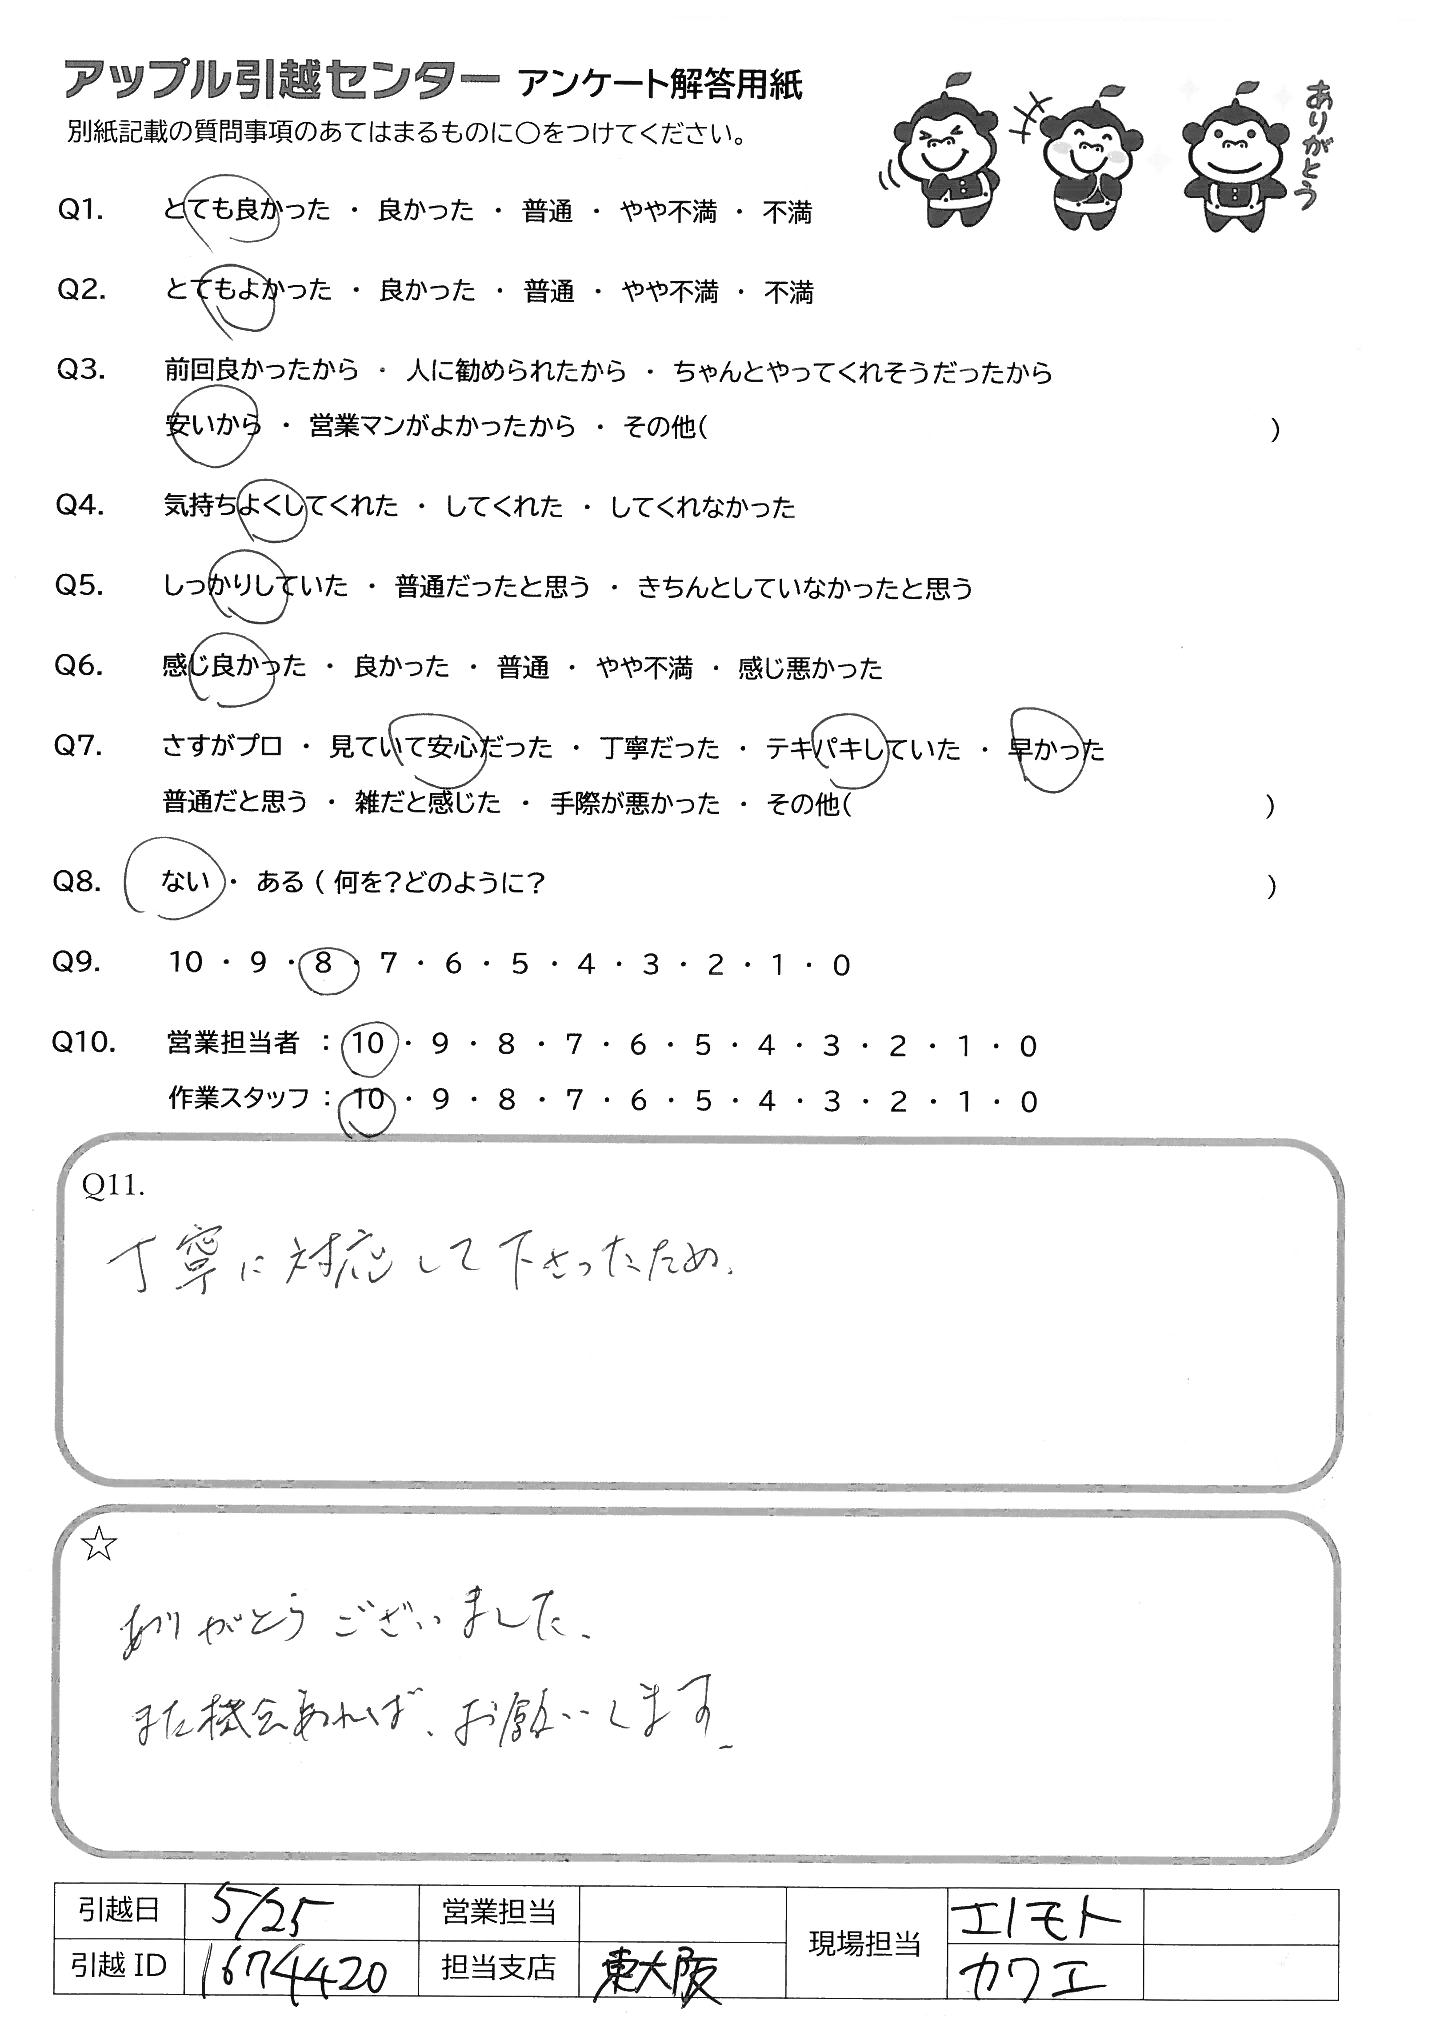 アップル引越センター アンケート解答用紙
別紙記載の質問事項のあてはまるものに○をつけてください。
ありがとう
Q1. とても良かった ・ 良かった ・ 普通 ・ やや不満 ・ 不満
Q2. とてもよかった ・ 良かった ・ 普通 ・ やや不満 ・ 不満
Q3. 前回良かったから ・ 人に勧められたから ・ ちゃんとやってくれそうだったから
安いから ・ 営業マンがよかったから ・ その他( )
Q4. 気持ちよくしてくれた ・ してくれた ・ してくれなかった
Q5. しっかりしていた ・ 普通だったと思う ・ きちんとしていなかったと思う
Q6. 感じ良かった ・ 良かった ・ 普通 ・ やや不満 ・ 感じ悪かった
Q7. さすがプロ ・ 見ていて安心だった ・ 丁寧だった ・ テキパキしていた ・ 早かった
普通だと思う ・ 雑だと感じた ・ 手際が悪かった ・ その他( )
Q8. ない ・ ある ( 何を？どのように？ )
Q9. 10 ・ 9 ・ 8 ・ 7 ・ 6 ・ 5 ・ 4 ・ 3 ・ 2 ・ 1 ・ 0
Q10. 営業担当者 ： 10 ・ 9 ・ 8 ・ 7 ・ 6 ・ 5 ・ 4 ・ 3 ・ 2 ・ 1 ・ 0
作業スタッフ ： 10 ・ 9 ・ 8 ・ 7 ・ 6 ・ 5 ・ 4 ・ 3 ・ 2 ・ 1 ・ 0
Q11.
丁寧に対応して下さったため。
☆
ありがとうございました。
また機会あれば、お願いします。
引越日 5/25 営業担当 現場担当 エノモト
引越ID 1674420 担当支店 東大阪 カワエ